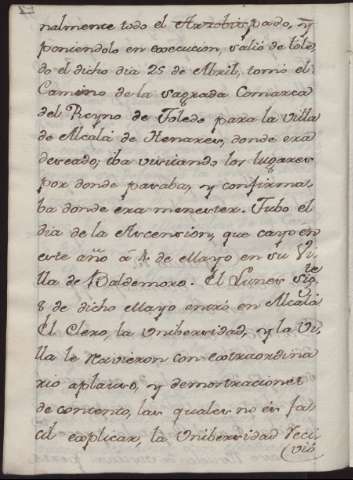 nalmente todo el Arzobispado, y
poniendolo en execucion, salió de Tole,
do el dicho dia 25 de Abril, tomó el
Camino de la sagrada Comarca
del Reyno de Toledo para la Villa
de Alcalá de Henares, donde era
deseado; iba visitando los lugares
por donde pasaba, y confirma,
ba donde era menester. Tubo el
dia de la Ascension, que cayo en
este año a 4 de Mayo en su Vi,
lla de Valdemoro. El Lunes sig.te
8 de dicho Mayo entró en Alcalá
El Clero, la Unibersidad, y la Vi
lla le recivieron con extraordina
rio aplauso, y demostraciones
de contento, las quales no es fa,
cil explicar, la Unibersidad reci
vió